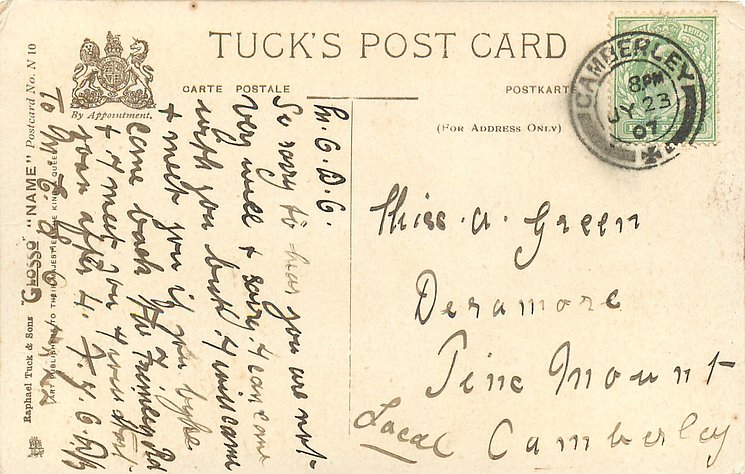 TUCK'S POST CARD
CARTE POSTALE
POSTKARTE
(FOR ADDRESS ONLY)
By Appointment.
CAMBERLEY
8 PM
JY 23
07
Raphael Tuck & Sons' "GLOSSO" "NAME" Postcard No. N 10
ART PUBLISHERS TO THEIR MAJESTIES THE KING & QUEEN
So sorry to hear you are not
very well & sorry I can come
with you but I will come
& meet you if you
come back Frimley Rd
& I meet you
4.
Miss. A. Green
Deramore
Pine Mount
Camberley
Local